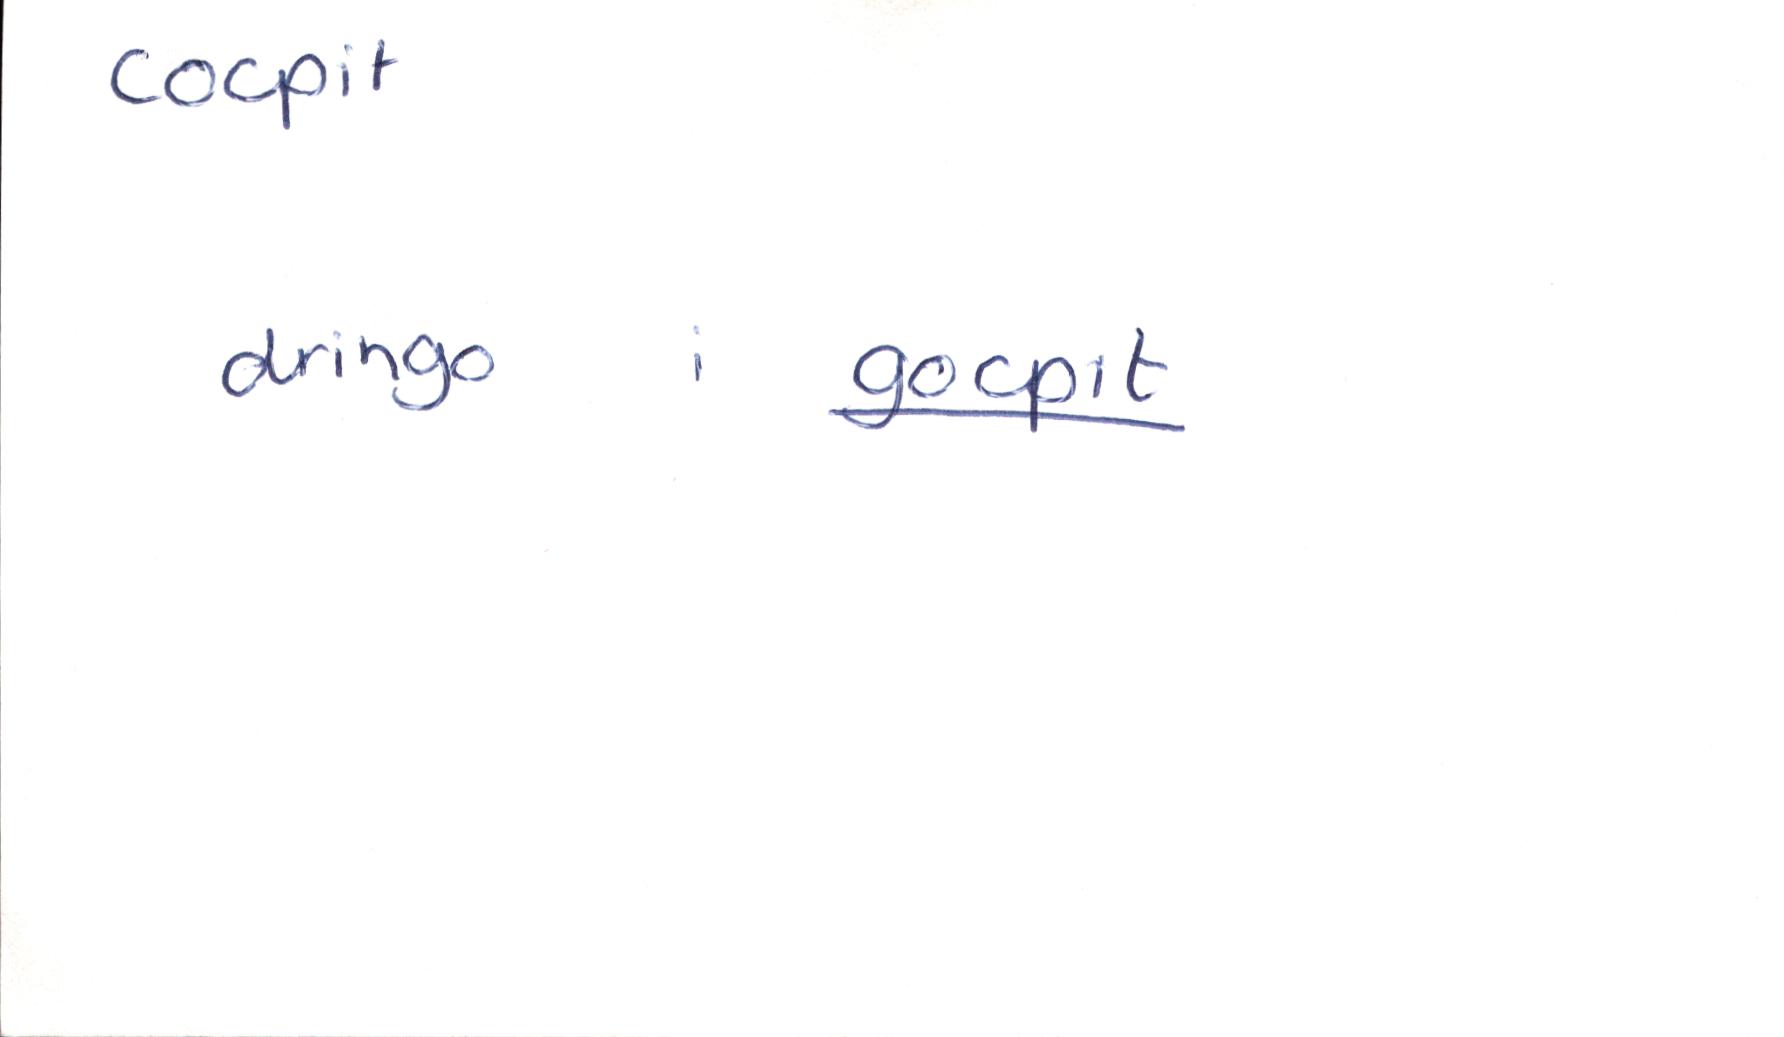 cocpit
dringo i gocpit